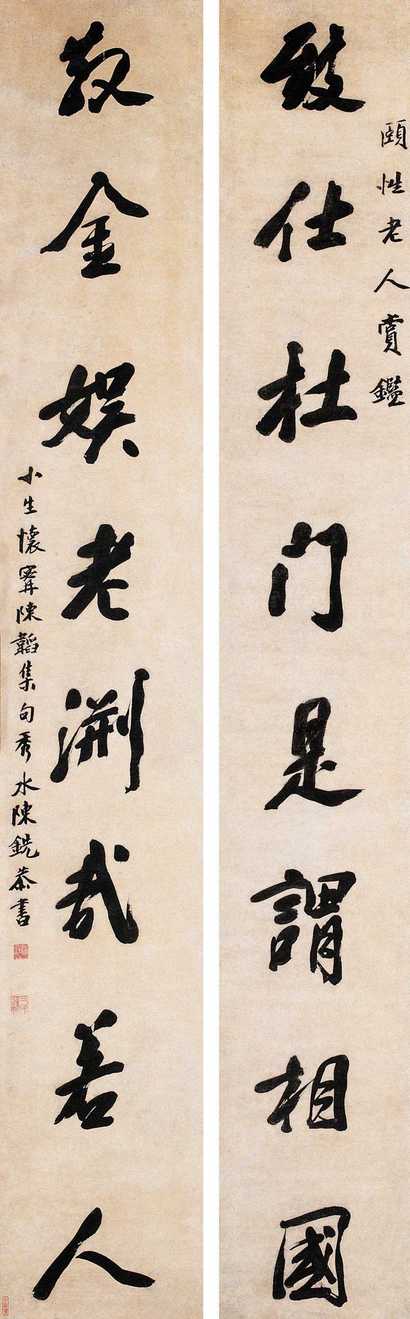 頤性老人賞鑑
致仕杜門是謂相國
散金娛老淵哉若人
小生懷寧陳韜集句秀水陳銑恭書